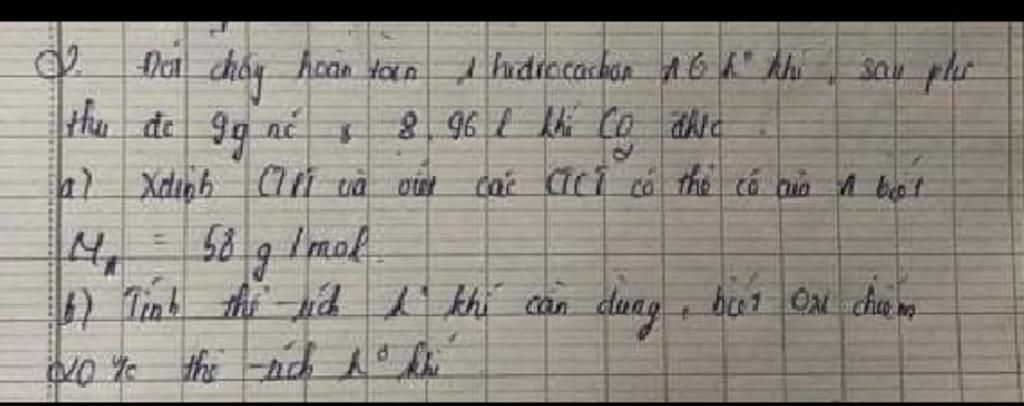 2. Đốt cháy hoàn toàn 1 hidrocacbon A ô k° khí, sau phư
thu đc 9g nc & 8,96 l khí CO2 đktc
a) Xđịnh CTPT và viết các CTCT có thể có của A biết
MA = 58 g/mol
b) Tính thể tích k° khí cần dùng, biết oxi chiếm
20 % thể tích k° khí